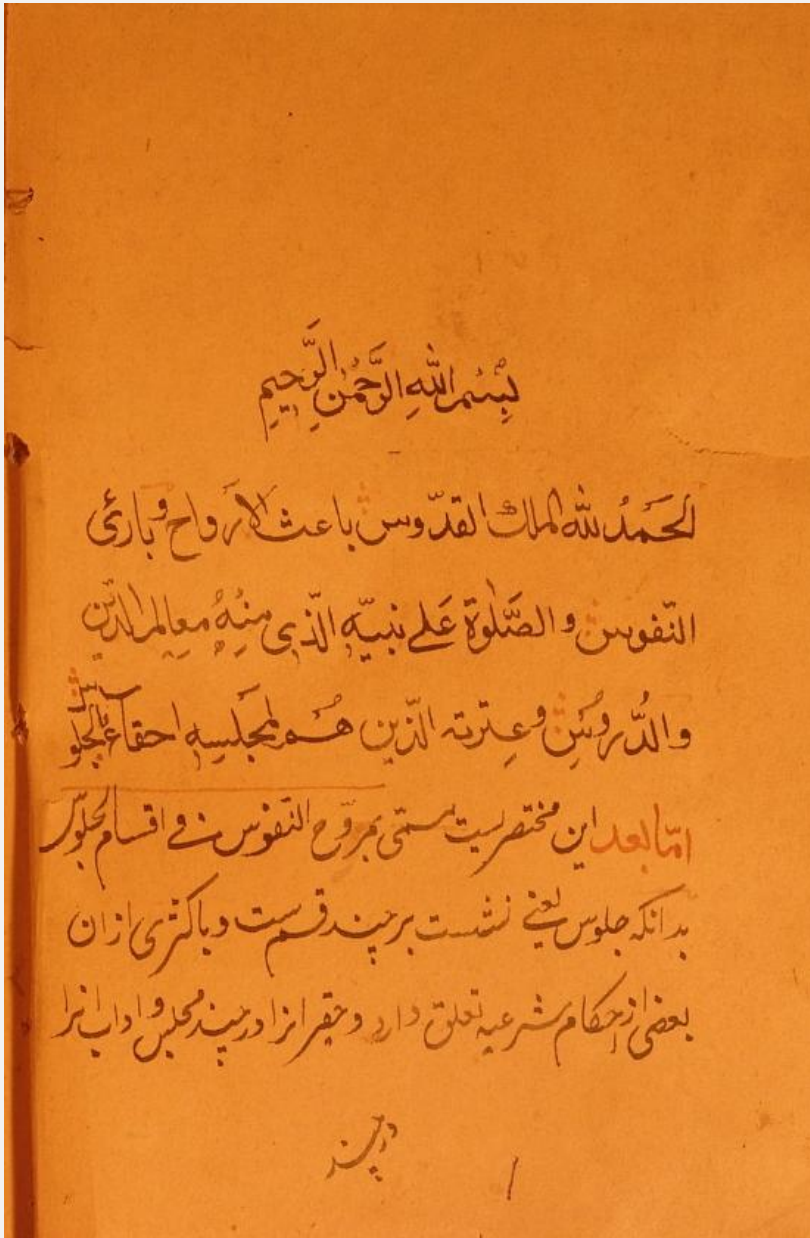 بِسْمِ اللّٰهِ الرَّحْمٰنِ الرَّحِيمِ
الحَمدُ لله الملك القدّوس باعث الارواح وبارئ
النّفوس والصَّلٰوة عَلے نبيّه الّذى مِنْهُ معالم الدّين
والدُّروس وعِترته الّذين هُم لمجلسِه احقاء بالجلوس
امّا بعد اين مختصريست مسمّى بمروّح النّفوس فے اقسام الجلوس
بدانكه جلوس يعنے نشست بر چند قسم ست و باكثرى ازان
بعضى از احكام شرعيه تعلق دارد و حقير انرا در چند مجلس و اداب انرا
در چند